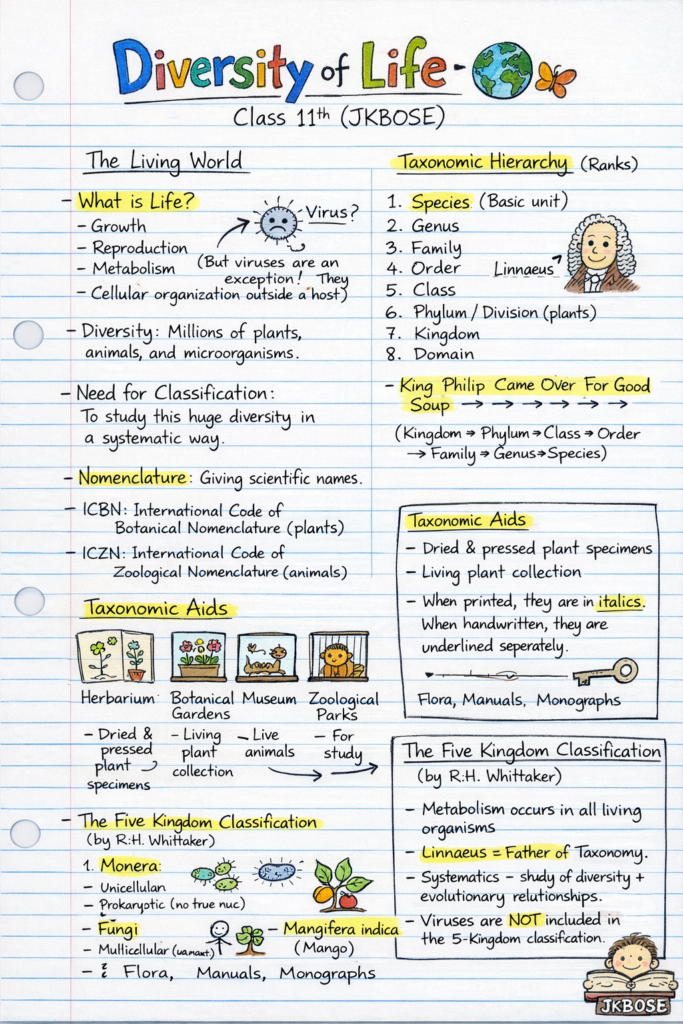 Diversity of Life -
Class 11th (JKBOSE)
The Living World
- What is Life?
- Growth
- Reproduction
- Metabolism
- Cellular organization outside a host)
Virus?
(But viruses are an
exception! They
- Diversity: Millions of plants,
animals, and microorganisms.
- Need for Classification:
To study this huge diversity in
a systematic way.
- Nomenclature: Giving scientific names.
- ICBN: International Code of
Botanical Nomenclature (plants)
- ICZN: International Code of
Zoological Nomenclature (animals)
Taxonomic Aids
Herbarium
Botanical
Gardens
Museum
Zoological
Parks
- Dried &
pressed
plant
specimens
- Living
plant
collection
- Live
animals
- For
study
- The Five Kingdom Classification
(by R.H. Whittaker)
1. Monera:
- Unicellulan
- Prokaryotic (no true nuc)
- Fungi
- Mullicellular
- Mangifera indica
(Mango)
- Flora, Manuals, Monographs
Taxonomic Hierarchy (Ranks)
1. Species (Basic unit)
2. Genus
3. Family
4. Order
5. Class
6. Phylum / Division (plants)
7. Kingdom
8. Domain
Linnaeus
- King Philip Came Over For Good
Soup → → → → → →
(Kingdom → Phylum → Class → Order
→ Family → Genus → Species)
Taxonomic Aids
- Dried & pressed plant specimens
- Living plant collection
- When printed, they are in italics.
When handwritten, they are
underlined seperately.
Flora, Manuals, Monographs
The Five Kingdom Classification
(by R.H. Whittaker)
- Metabolism occurs in all living
organisms
- Linnaeus = Father of Taxonomy.
- Systematics - shudy of diversity +
evolutionary relationships.
- Viruses are NOT included in
the 5-Kingdom classification.
JKBOSE